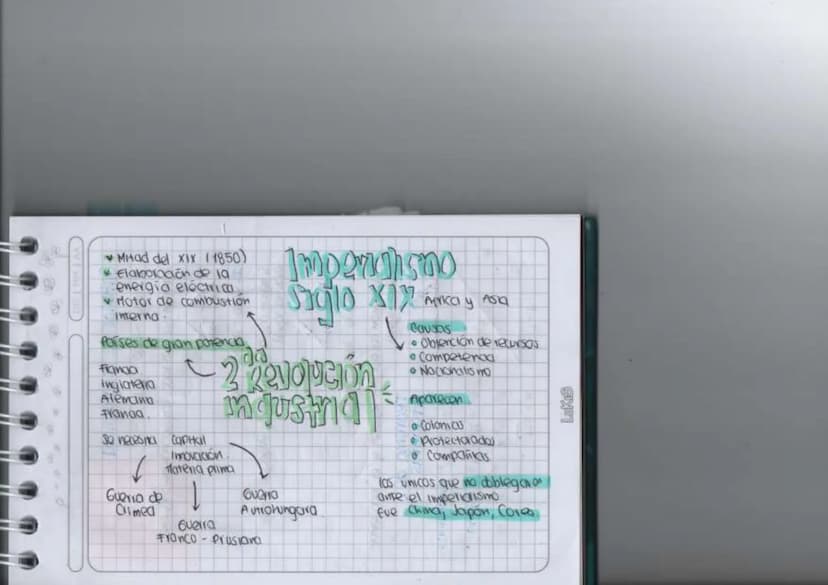 Mitad del XIX (1850)
Elaboración de la
energía eléctrica
Motor de combustión
interna.
Países de gran potencia
Francia
Inglaterra
Alemania
Francia.
2da Revolución
industrial
Se necesita capital
Innovación
Materia prima
Guerra de
Crimea
Guerra
Franco - Prusiana
Guerra
Austrohungara
Imperialismo
siglo XIX África y Asia
Causas
Obtención de recursos
Competencia
Nacionalismo
Aparecen
Colonias
Protectorados
Compañías
Los únicos que no doblegaron
ante el imperialismo
fue China, Japón, Corea